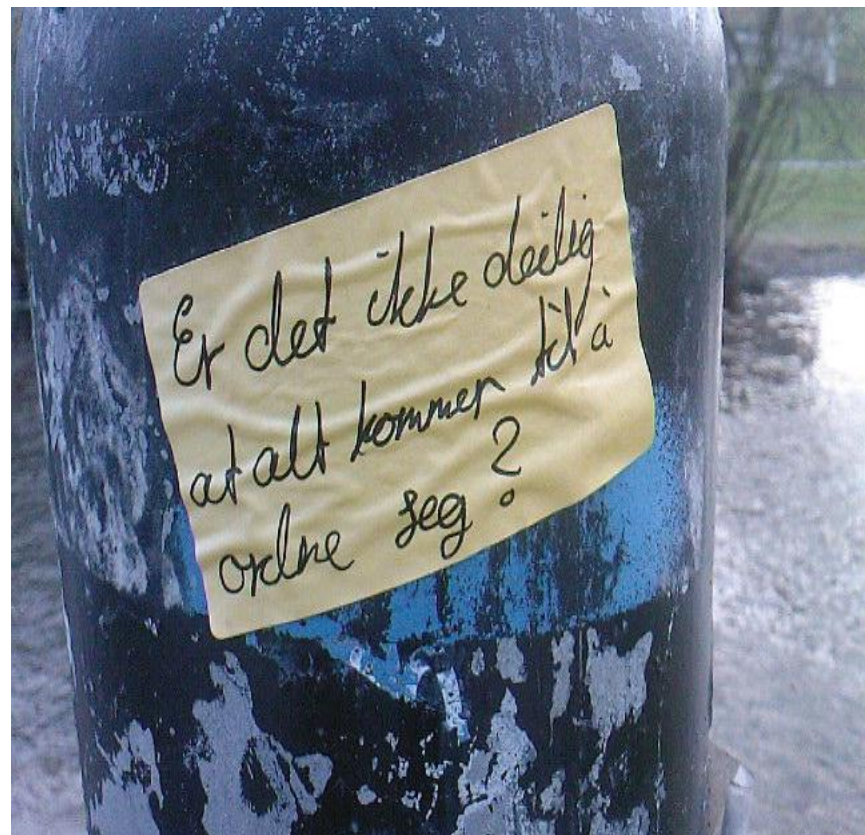 Er det ikke deilig
at alt kommer til å
ordne seg?